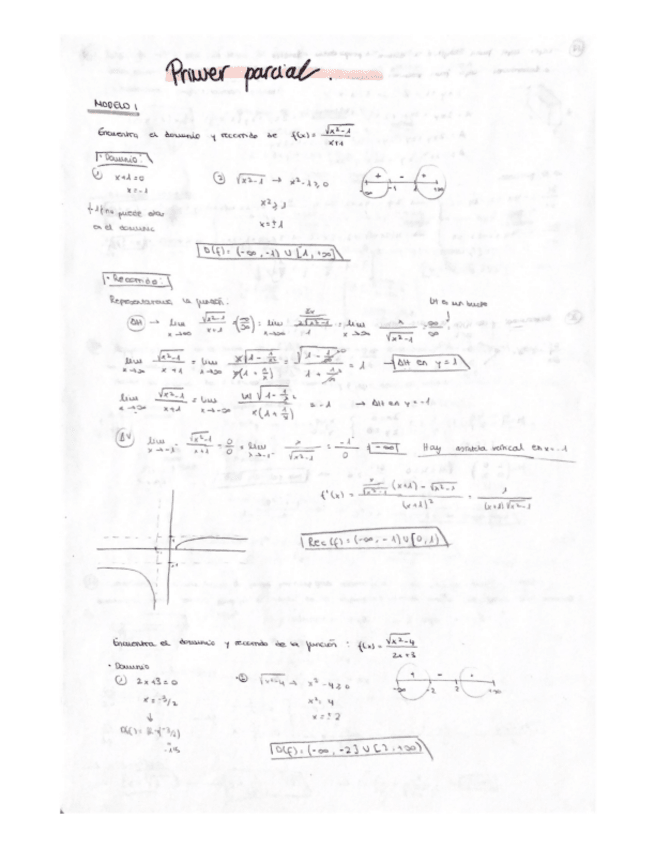 Primer parcial.
MODELO 1
Encuentra el dominio y recorrido de f(x) = √(x²-1) / x+1
· Dominio:
① x+1=0
x=-1
② √(x²-1) → x²-1≥0
x²≥1
x=±1
en el dominio
D(f): (-∞, -1) ∪ [1, +∞)
· Recorrido:
Representamos la función.
AH → lim x→∞ √(x²-1) / x+1
lim x→∞ √(x²-1) / x+1 = lim x→∞ x√(1-1/x²) / x(1+1/x) = 1 → AH en y=1
lim √(x²-1) / x+1 = lim x→-∞ |x|√(1-1/x²) / x(1+1/x) = -1 → AH en y=-1
AV lim x→-1⁻ √(x²-1) / x+1 = 0/0 = lim x→-1⁻ x / √(x²-1) = -1/0 = -∞ Hay asíntota vertical en x=-1
f'(x) = x/√(x²-1) (x+1) - √(x²-1) / (x+1)² = 1 / (x+1)√(x²-1)
Rec(f) = (-∞, -1) ∪ [0, 1)
Encuentra el dominio y recorrido de la función: f(x) = √(x²-4) / 2x+3
· Dominio
① 2x+3=0
x=-3/2
② √(x²-4) → x²-4≥0
x²=4
x=±2
D(f): (-∞, -2] ∪ [2, +∞)